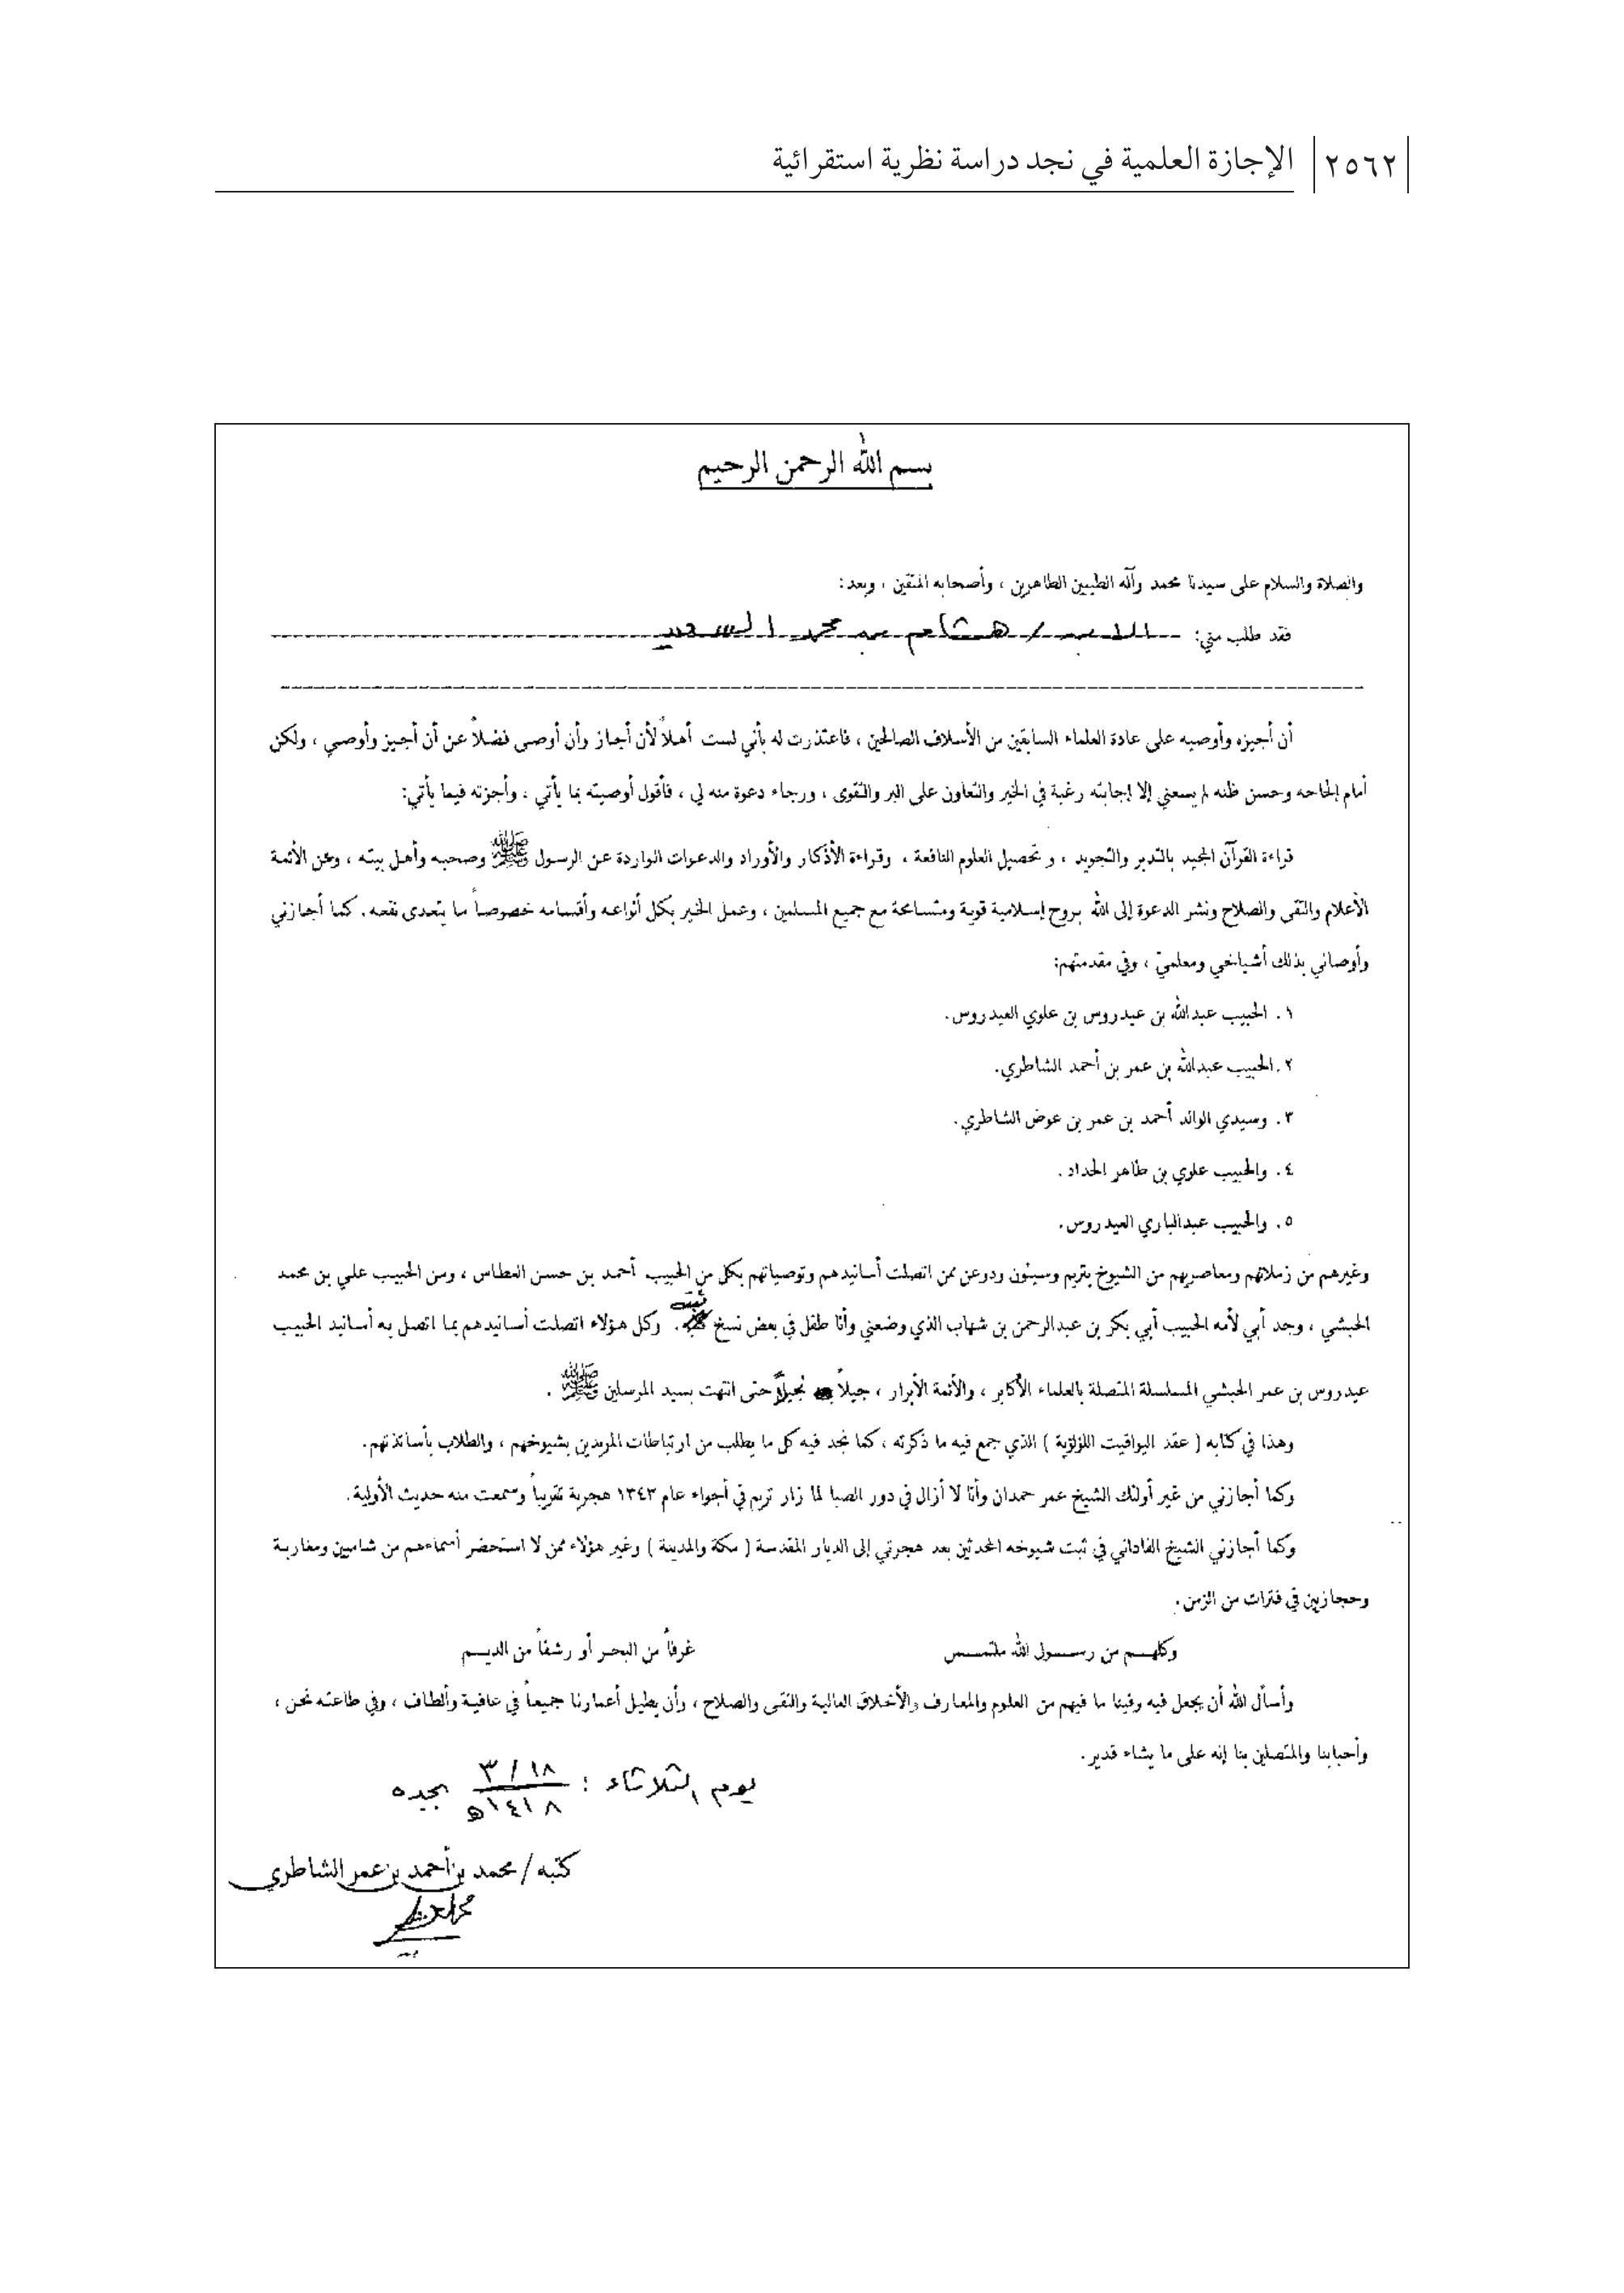 ٢٥٦٢ الإجازة العلمية في نجد دراسة نظرية استقرائية
بسم الله الرحمن الرحيم
والصلاة والسلام على سيدنا محمد وآله الطيبين الطاهرين ، وأصحابه المتقين ، وبعد:
فقد طلب مني: / هشام بن محمد السعيد
أن أجيزه وأوصيه على عادة العلماء السابقين من الأسلاف الصالحين ، فاعتذرت له بأني لست أهلاً لأن أجاز وأن أوصى فضلاً عن أن أجيز وأوصي ، ولكن
أمام إلحاحه وحسن ظنه لم يسعني إلا إجابته رغبة في الخير والتعاون على البر والتقوى ، ورجاء دعوة منه لي ، فأقول أوصيته بما يأتي ، وأجزته فيما يأتي:
قراءة القرآن المجيد بالتدبر والتجويد ، و تحصيل العلوم النافعة ، وقراءة الأذكار والأوراد والدعوات الواردة عن الرسول ﷺ وصحبه وأهل بيته ، وعن الأئمة
الأعلام والتقى والصلاح ونشر الدعوة إلى الله بروح إسلامية قوية ومتسامحة مع جميع المسلمين ، وعمل الخير بكل أنواعه وأقسامه خصوصاً ما يتعدى نفعه. كما أجازني
وأوصاني بذلك أشياخي ومعلميّ ، وفي مقدمتهم:
١. الحبيب عبدالله بن عيدروس بن علوي العيدروس.
٢.الحبيب عبدالله بن عمر بن أحمد الشاطري.
٣. وسيدي الوالد أحمد بن عمر بن عوض الشاطري.
٤. والحبيب علوي بن طاهر الحداد.
٥. والحبيب عبدالباري العيدروس.
وغيرهم من زملائهم ومعاصريهم من الشيوخ بتريم وسيئون ودوعن ممن اتصلت أسانيدهم وتوصياتهم بكل من الحبيب أحمد بن حسن العطاس ، ومن الحبيب علي بن محمد
الحبشي ، وجد أبي لأمه الحبيب أبي بكر بن عبدالرحمن بن شهاب الذي وضعني وأنا طفل في بعض نسخ . وكل هؤلاء اتصلت أسانيدهم بما اتصل به أسانيد الحبيب
عيدروس بن عمر الحبشي المسلسلة المتصلة بالعلماء الأكابر ، والأئمة الأبرار ، جيلاً فجيلاً حتى انتهت بسيد المرسلين ﷺ .
وهذا في كتابه ( عقد اليواقيت اللؤلؤية ) الذي جمع فيه ما ذكرته ، كما نجد فيه كل ما يطلب من ارتباطات المريدين بشيوخهم ، والطلاب بأساتذتهم.
وكما أجازني من غير أولئك الشيخ عمر حمدان وأنا لا أزال في دور الصبا لما زار تريم في أجواء عام ١٣٤٣ هجرية تقريباً وسمعت منه حديث الأولية.
وكما أجازني الشيخ الفاداني في ثبت شيوخه المحدثين بعد هجرتي إلى الديار المقدسة ( مكة والمدينة ) وغير هؤلاء ممن لا استحضر أسماءهم من شاميين ومغاربة
وحجازيين في فترات من الزمن.
وكلهم من رسول الله ملتمس غرفاً من البحر أو رشفاً من الديم
وأسأل الله أن يجعل فيه وفينا ما فيهم من العلوم والمعارف والأخلاق العالية والتقى والصلاح ، وأن يطيل أعمارنا جميعاً في عافية وألطاف ، وفي طاعته نحن ،
وأحبابنا والمتصلين بنا إنه على ما يشاء قدير.
يوم الثلاثاء : ١٨ / ٣ / ١٤١٨ه بجده
كتبه / محمد بن أحمد بن عمر الشاطري